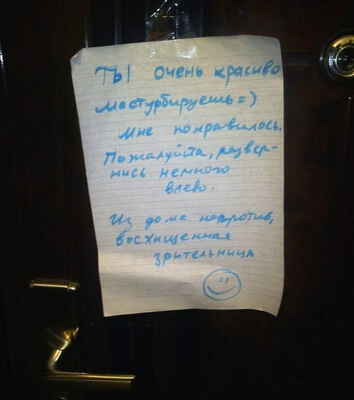 ТЫ очень красиво
мастурбируешь=)
Мне понравилось.
Пожалуйста, развер-
нись немного
влево.
Из дома напротив,
восхищенная
зрительница